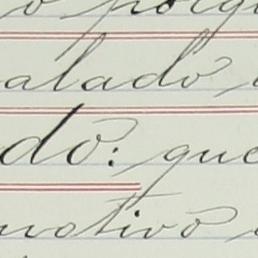 o porq
alado
do: que
motivo